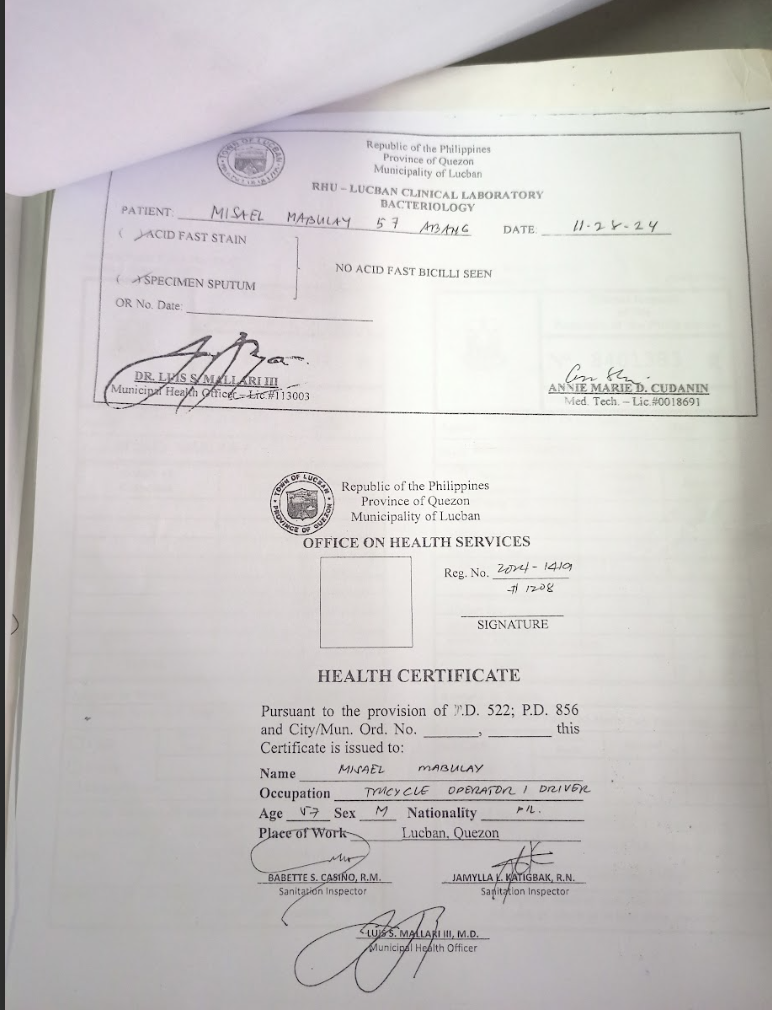 Republic of the Philippines
Province of Quezon
Municipality of Lucban
RHU – LUCBAN CLINICAL LABORATORY
BACTERIOLOGY
PATIENT: MISAEL MABULAY 57 ABANG DATE 11-28-24
( ) ACID FAST STAIN
NO ACID FAST BICILLI SEEN
( ) SPECIMEN SPUTUM
OR No. Date:
DR. LUIS S. MALLARI III
Municipal Health Officer – Lic.#113003
ANNIE MARIE D. CUDANIN
Med. Tech. – Lic.#0018691
TOWN OF LUCBAN
PROVINCE OF QUEZON
Republic of the Philippines
Province of Quezon
Municipality of Lucban
OFFICE ON HEALTH SERVICES
Reg. No. 2024-1419
# 1208
SIGNATURE
HEALTH CERTIFICATE
Pursuant to the provision of P.D. 522; P.D. 856
and City/Mun. Ord. No. ______, ______ this
Certificate is issued to:
Name MISAEL MABULAY
Occupation TRICYCLE OPERATOR / DRIVER
Age 57 Sex M Nationality FIL.
Place of Work Lucban, Quezon
BABETTE S. CASIÑO, R.M.
Sanitation Inspector
JAMYLLA L. KATIGBAK, R.N.
Sanitation Inspector
LUIS S. MALLARI III, M.D.
Municipal Health Officer